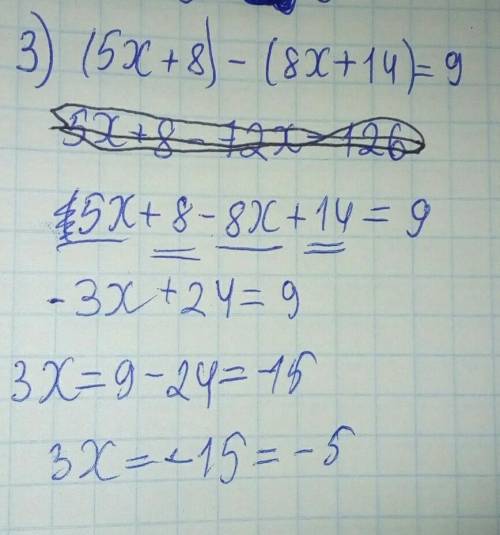 3) (5x+8)-(8x+14)=9
5x+8-12x-126
5x+8-8x+14=9
-3x+24=9
3x=9-24=-15
3x=-15=-5